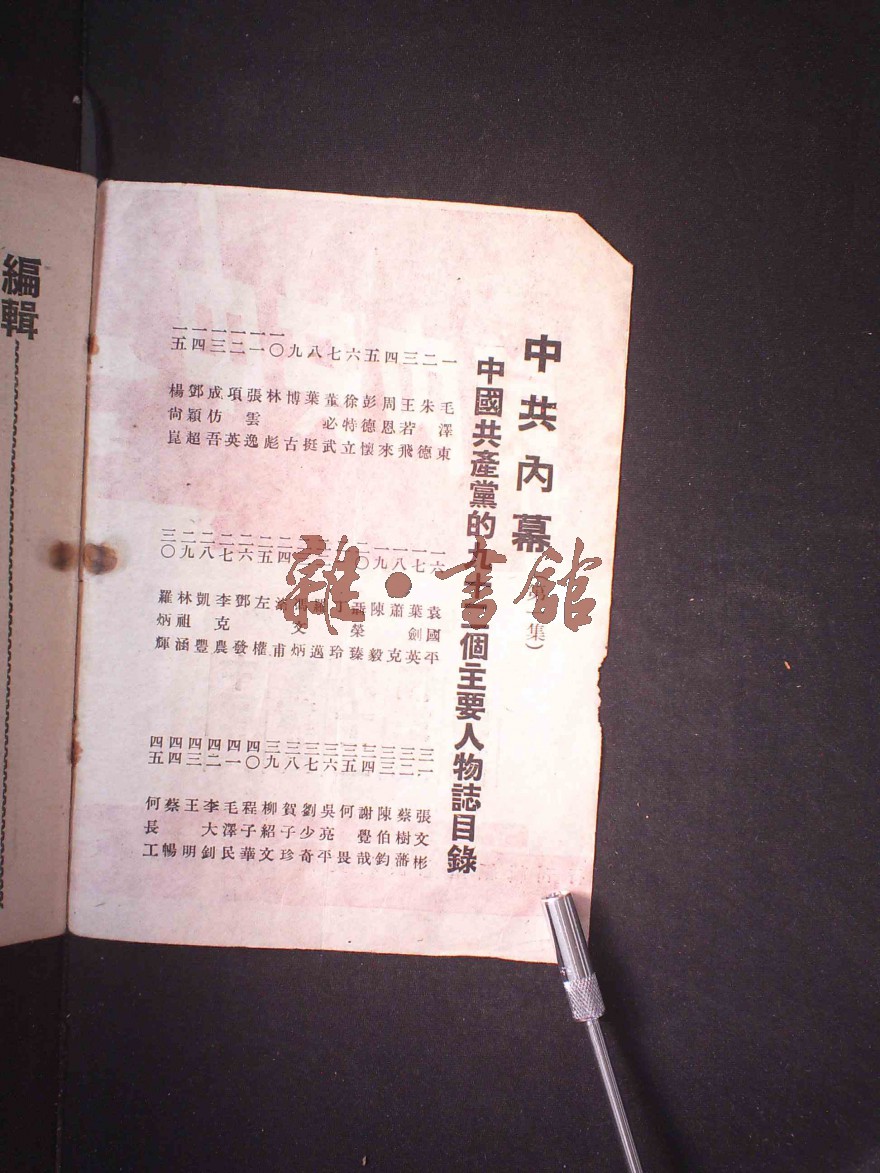 中共內幕
集）
中國共產黨的九十個主要人物誌目錄
一 毛澤東
二 朱德
三 王若飛
四 周恩來
五 彭德懷
六 徐特立
七 董必武
八 葉挺
九 博古
一〇 林彪
一一 張雲逸
一二 項英
一三 成仿吾
一四 鄧穎超
一五 楊尙崑
一六 袁國平
一七 葉劍英
一八 蕭克
一九 陳毅
二〇 聶榮臻
丁玲
邁
炳
四 甫
二五 左權
二六 鄧發
二七 李克農
二八 凱豐
二九 林祖涵
三〇 羅炳輝
三一 張文彬
三二 蔡樹藩
三三 陳伯鈞
三四 謝覺哉
三五 何畏
三六 吳亮平
三七 劉少奇
三八 賀子珍
三九 柳紹文
四〇 程子華
四一 毛澤民
四二 李大釗
四三 王明
四四 蔡暢
四五 何長工
編輯
雜·書館